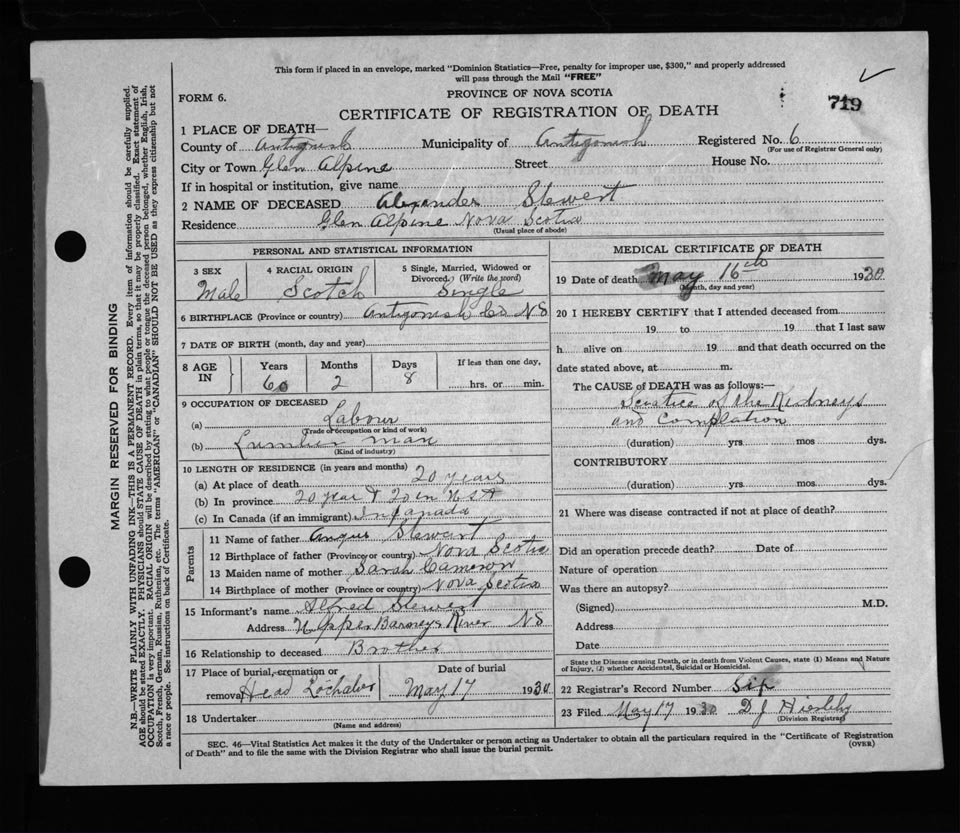 This form if placed in an envelope, marked "Dominion Statistics—Free, penalty for improper use, $300," and properly addressed
will pass through the Mail "FREE"
FORM 6.
PROVINCE OF NOVA SCOTIA
719
CERTIFICATE OF REGISTRATION OF DEATH
1 PLACE OF DEATH—
County of Antigonish Municipality of Antigonish Registered No. 6
(For use of Registrar General only)
City or Town Glen Alpine Street House No.
If in hospital or institution, give name
2 NAME OF DECEASED Alexander Stewert
Residence Glen Alpine Nova Scotia
(Usual place of abode)
PERSONAL AND STATISTICAL INFORMATION
3 SEX Male
4 RACIAL ORIGIN Scotch
5 Single, Married, Widowed or Divorced. (Write the word) Single
6 BIRTHPLACE (Province or country) Antigonish Co NS
7 DATE OF BIRTH (month, day and year)
8 AGE IN Years 60 Months 2 Days 8 If less than one day, hrs. or min.
9 OCCUPATION OF DECEASED
(a) Labour
(Trade or occupation or kind of work)
(b) Lumber man
(Kind of industry)
10 LENGTH OF RESIDENCE (in years and months)
(a) At place of death 20 years
(b) In province 20 year & 20 in
(c) In Canada (if an immigrant) In Canada
Parents
11 Name of father Angus Stewart
12 Birthplace of father (Province or country) Nova Scotia
13 Maiden name of mother Sarah Cameron
14 Birthplace of mother (Province or country) Nova Scotia
15 Informant's name Alfred Stewert
Address Upper Barneys River NS
16 Relationship to deceased Brother
17 Place of burial, cremation or removal Head Lochaber
Date of burial May 17 1930
18 Undertaker
(Name and address)
MEDICAL CERTIFICATE OF DEATH
19 Date of death May 16th 1930
(Month, day and year)
20 I HEREBY CERTIFY that I attended deceased from
19 to 19 that I last saw
h alive on 19 and that death occurred on the
date stated above, at m.
The CAUSE OF DEATH was as follows:—
of the Kidneys
and
(duration) yrs. mos dys.
CONTRIBUTORY
(duration) yrs. mos. dys.
21 Where was disease contracted if not at place of death?
Did an operation precede death? Date of
Nature of operation
Was there an autopsy?
(Signed) M.D.
Address
Date
State the Disease causing Death, or in death from Violent Causes, state (1) Means and Nature
of Injury, (2) whether Accidental, Suicidal or Homicidal.
22 Registrar's Record Number Six
23 Filed May 17 1930 D J
(Division Registrar)
SEC. 46—Vital Statistics Act makes it the duty of the Undertaker or person acting as Undertaker to obtain all the particulars required in the "Certificate of Registration
of Death" and to file the same with the Division Registrar who shall issue the burial permit.
(OVER)
MARGIN RESERVED FOR BINDING
N.B.—WRITE PLAINLY WITH UNFADING INK—THIS IS A PERMANENT RECORD. Every item of information should be carefully supplied.
AGE should be stated EXACTLY. PHYSICIANS should STATE CAUSE OF DEATH in plain terms, so that it may be properly classified. Exact statement of
OCCUPATION is very important. RACIAL ORIGIN will be described by stating to what people or tongue the deceased person belonged, whether English, Irish,
Scotch, French, German, Russian, Ruthenian, etc. The terms "AMERICAN" or "CANADIAN" SHOULD NOT BE USED as they express citizenship but not
a race or people. See instructions on back of Certificate.